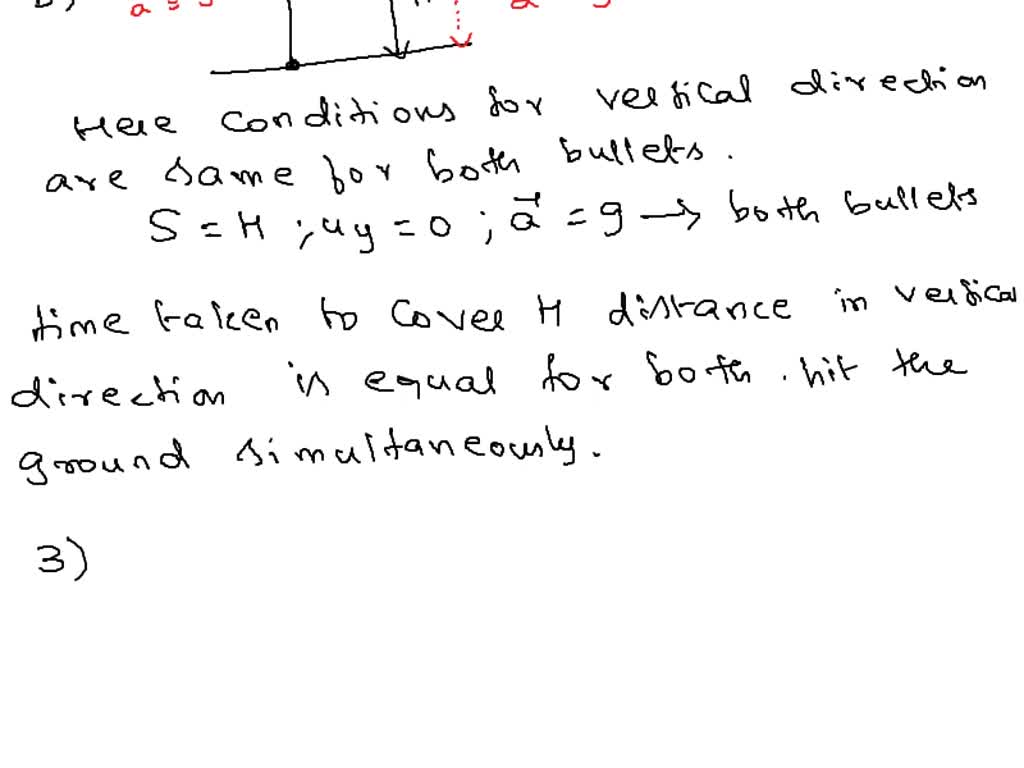 a = g
Here conditions for vertical direction
are same for both bullets.
S = H ; uy = 0 ; a⃗ = g → both bullets
time taken to cover H distance in vertical
direction is equal for both . hit the
ground simultaneously.
3)